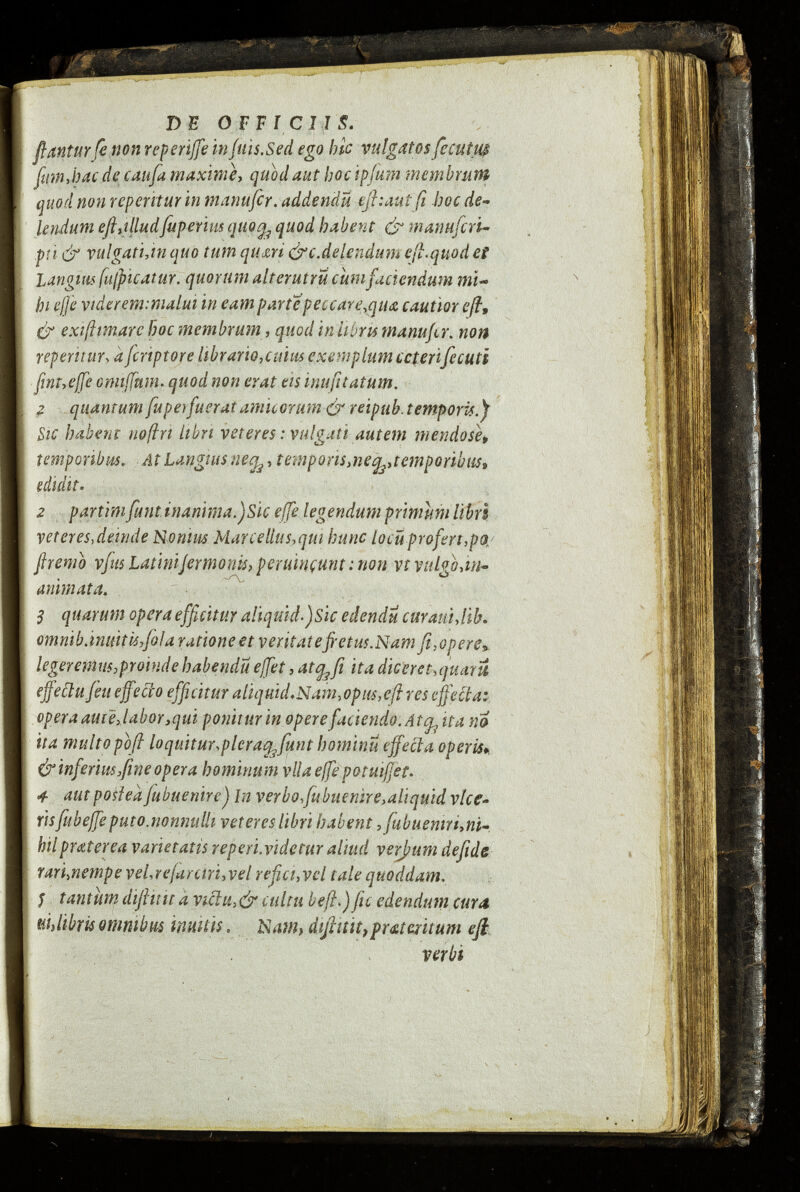 DE OFFICIIS.
ſtantur ſe non reperiſſe in ſuis. Sed ego hîc vulgatos ſecutus
ſum, hac de cauſa maximè, quòd aut hoc ipſum membrum
quod non reperitur in manuſcr. addendũ eſt: aut ſi hoc de-
lendum eſt, illud ſuperius quoq; quod habent & manuſcri-
pti & vulgati, in quo tum quæri &c. delendum eſt. quod et
Langius ſuſpicatur. quorum alterutrũ cùm faciendum mi-
hi eſſe viderem: malui in eam partẽ peccare, quæ cautior eſt,
& exiſtimare hoc membrum, quod in libris manuſcr. non
reperitur, à ſcriptore librario, cuius exemplum cęteri ſecuti
ſint, eſſe omiſſum. quod non erat eis inuſitatum.
2 quantum ſuperfuerat amicorum & reipub. temporis.)
Sic habent noſtri libri veteres: vulgati autem mendosè,
temporibus. At Langius neq;, temporis, neq;, temporibus,
edidit.
2 partim ſunt inanima.) Sic eſſe legendum primùm libri
veteres, deinde Nonius Marcellus, qui hunc locũ profert, po
ſtremò vſus Latini ſermonis, peruincunt: non vt vulgò, in-
animata.
3 quarum opera efficitur aliquid.) Sic edendũ curaui, lib.
omnib. inuitis, ſola ratione et veritate fretus. Nam ſi, opere,
legeremus, proinde habendũ eſſet, atq; ſi ita diceret, quarũ
effectu ſeu effecto efficitur aliquid. Nam, opus, eſt res effecta:
opera autẽ, labor, qui ponitur in opere faciendo. Atq; ita nõ
ita multo pòſt loquitur, pleraq; ſunt hominũ effecta operis,
& inferius, ſine opera hominum vlla eſſe potuiſſet.
4 aut posteà ſubuenire) In verbo, ſubuenire, aliquid vlce-
ris ſubeſſe puto. nonnulli veteres libri habent, ſubueniri, ni-
hil præterea varietatis reperi. videtur aliud verbum deſide
rari, nempe vel, reſarciri, vel refici, vel tale quoddam.
5 tantùm diſtitit à victu, & cultu beſt.) ſic edendum cura
ui, libris omnibus inuitis. Nam, diſtitit, præteritum eſt
verbi